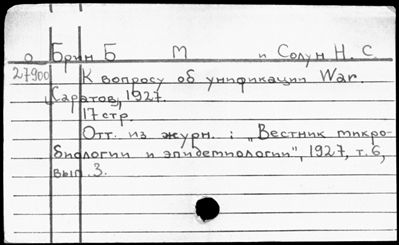 о Брин Б М и Солун Н. С
27900 К вопросу об унификации War.
Саратов, 1927.
17 стр.
Отт. из журн. : „Вестник микро-
биологии и эпидемиологии", 1927, т. 6,
вып. 3.